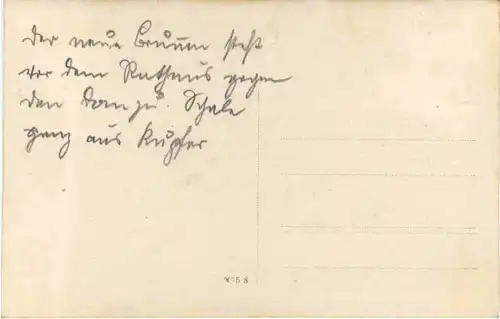 der neue Brunnen steht
vor dem Rathaus gegen
den Dom zu. Schale
ganz aus Kupfer